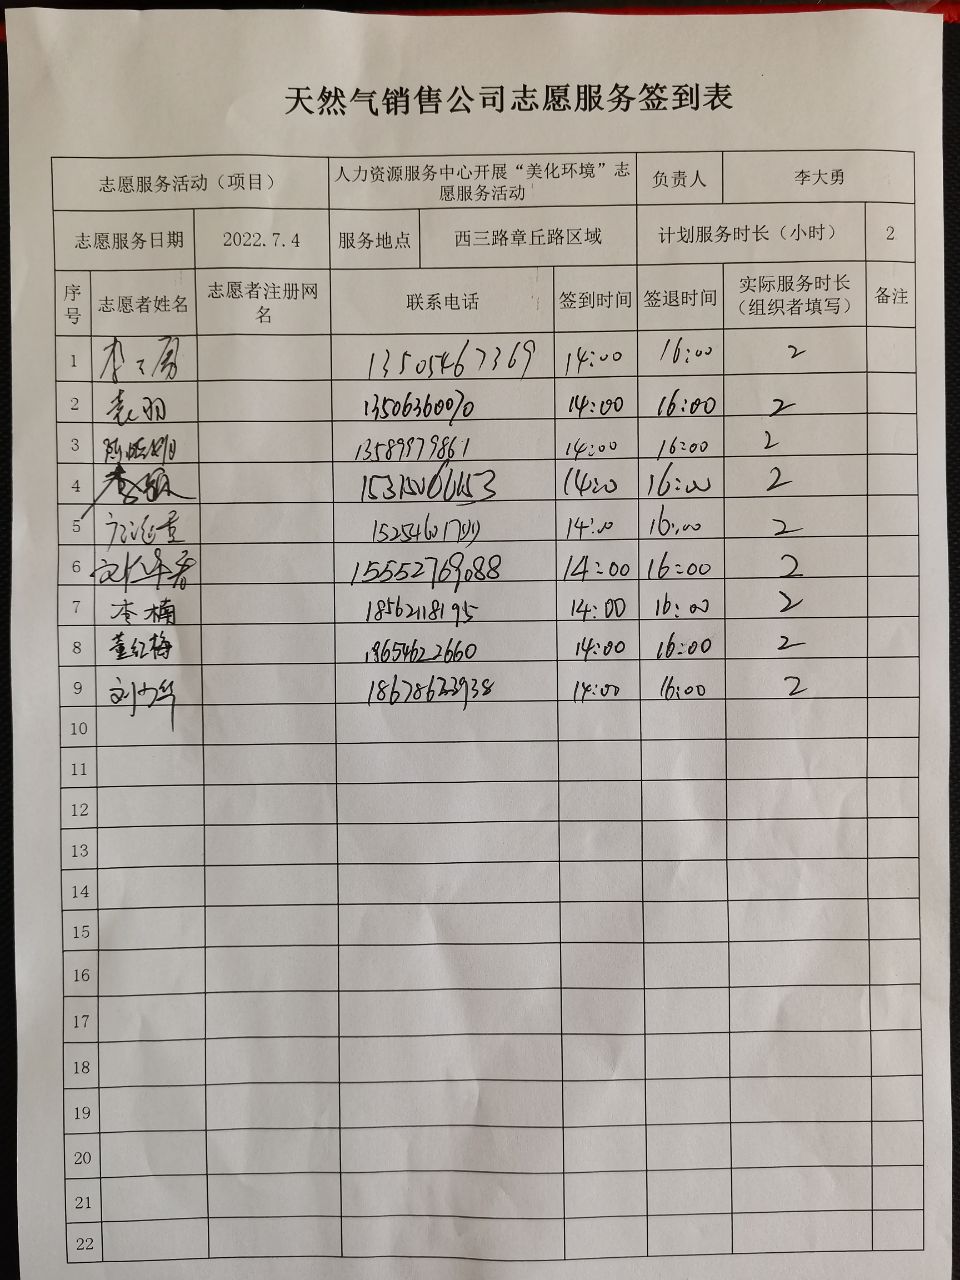 天然气销售公司志愿服务签到表
志愿服务活动（项目） 人力资源服务中心开展“美化环境”志愿服务活动 负责人 李大勇
志愿服务日期 2022.7.4 服务地点 西三路章丘路区域 计划服务时长（小时） 2
序号 志愿者姓名 志愿者注册网名 联系电话 签到时间 签退时间 实际服务时长（组织者填写） 备注
1 李大勇 13505467369 14:00 16:00 2
2 袁羽 13506360070 14:00 16:00 2
3 13589979861 14:00 16:00 2
4 14:00 16:00 2
5 14:00 16:00 2
6 15552769088 14:00 16:00 2
7 李楠 18562118195 14:00 16:00 2
8 董红梅 18654622660 14:00 16:00 2
9 18678623938 14:00 16:00 2
10
11
12
13
14
15
16
17
18
19
20
21
22